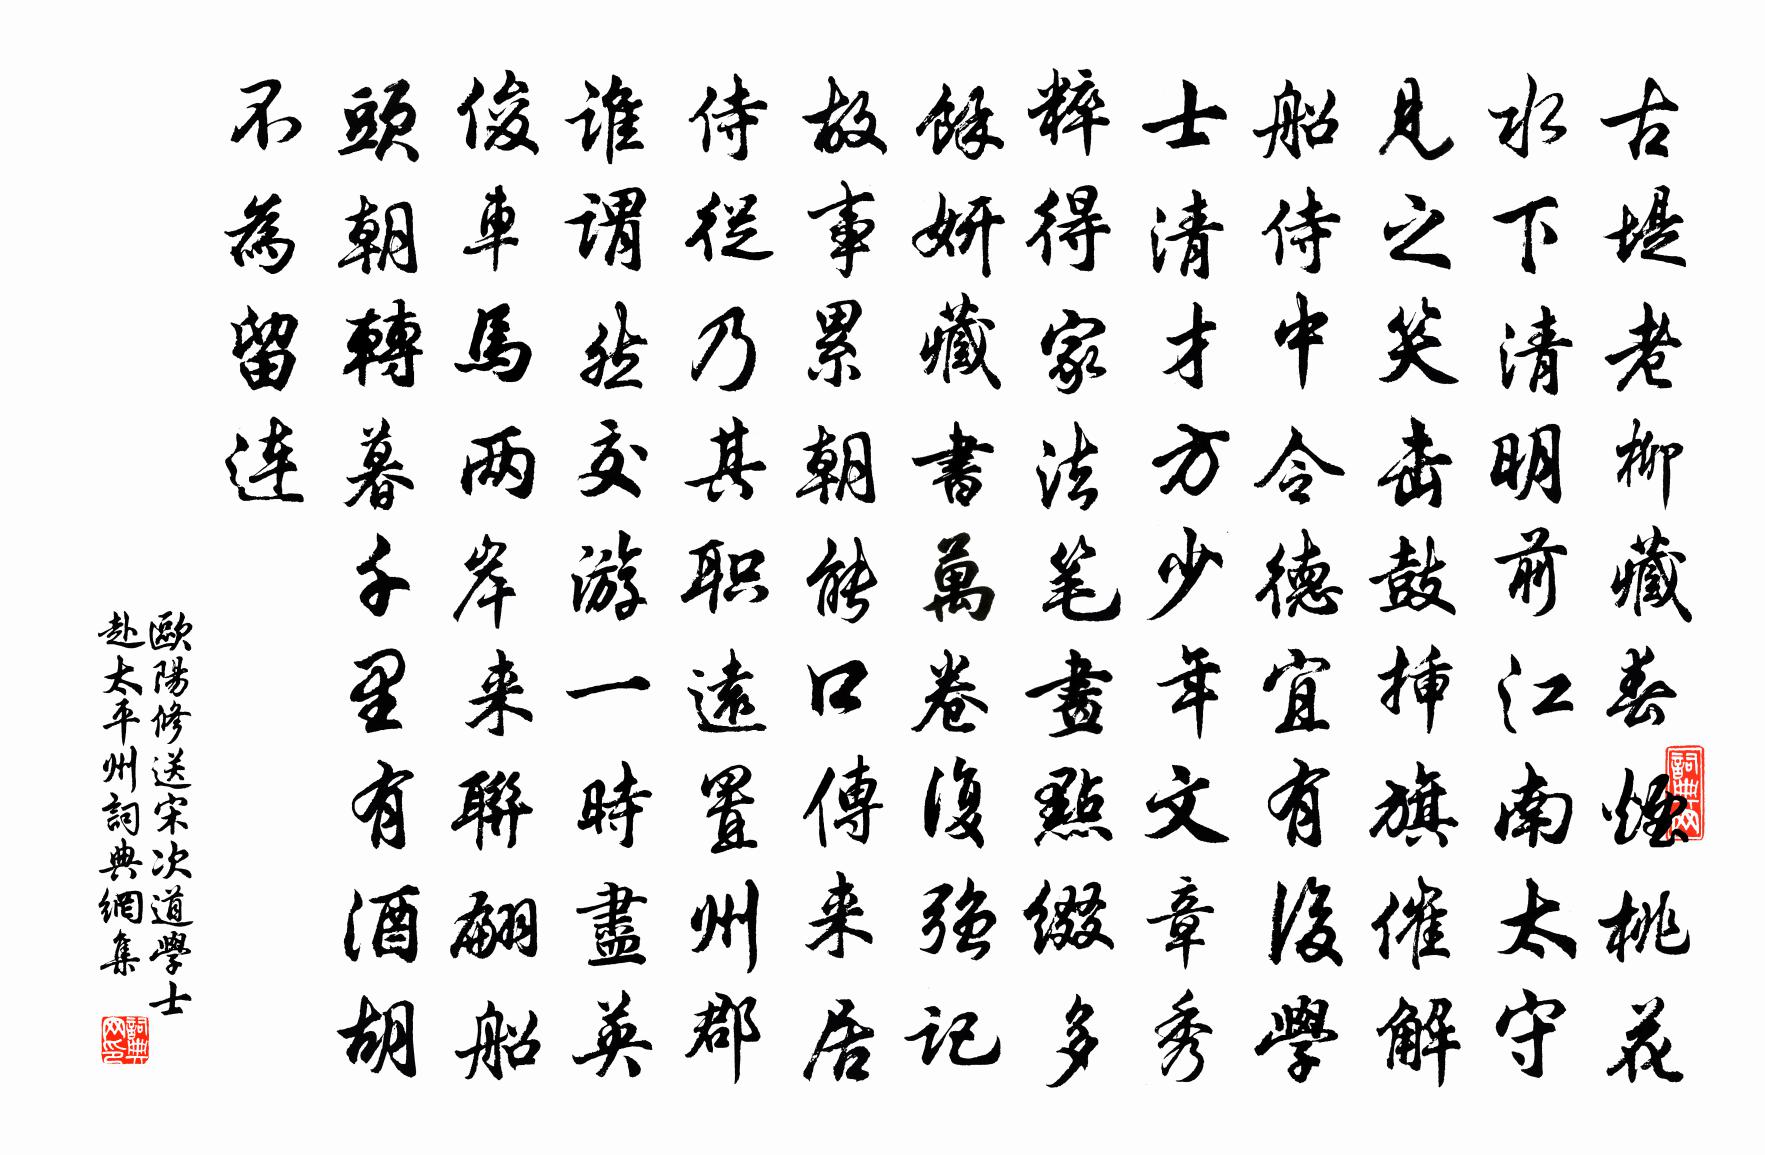 古堤老柳藏春煙桃花
水下清明前江南太守
見之笑擊鼓插旗催解
船侍中令德宜有後學
士清才方少年文章秀
粹得家法笔畫點綴多
餘妍藏書萬卷復强記
故事累朝能口傳来居
侍從乃其职遠置州郡
誰謂然交游一時盡英
俊車馬两岸来聯翩船
頭朝轉暮千里有酒胡
不為留連
歐陽修送宋次道學士
赴太平州詞典網集
詞典网
詞典网印